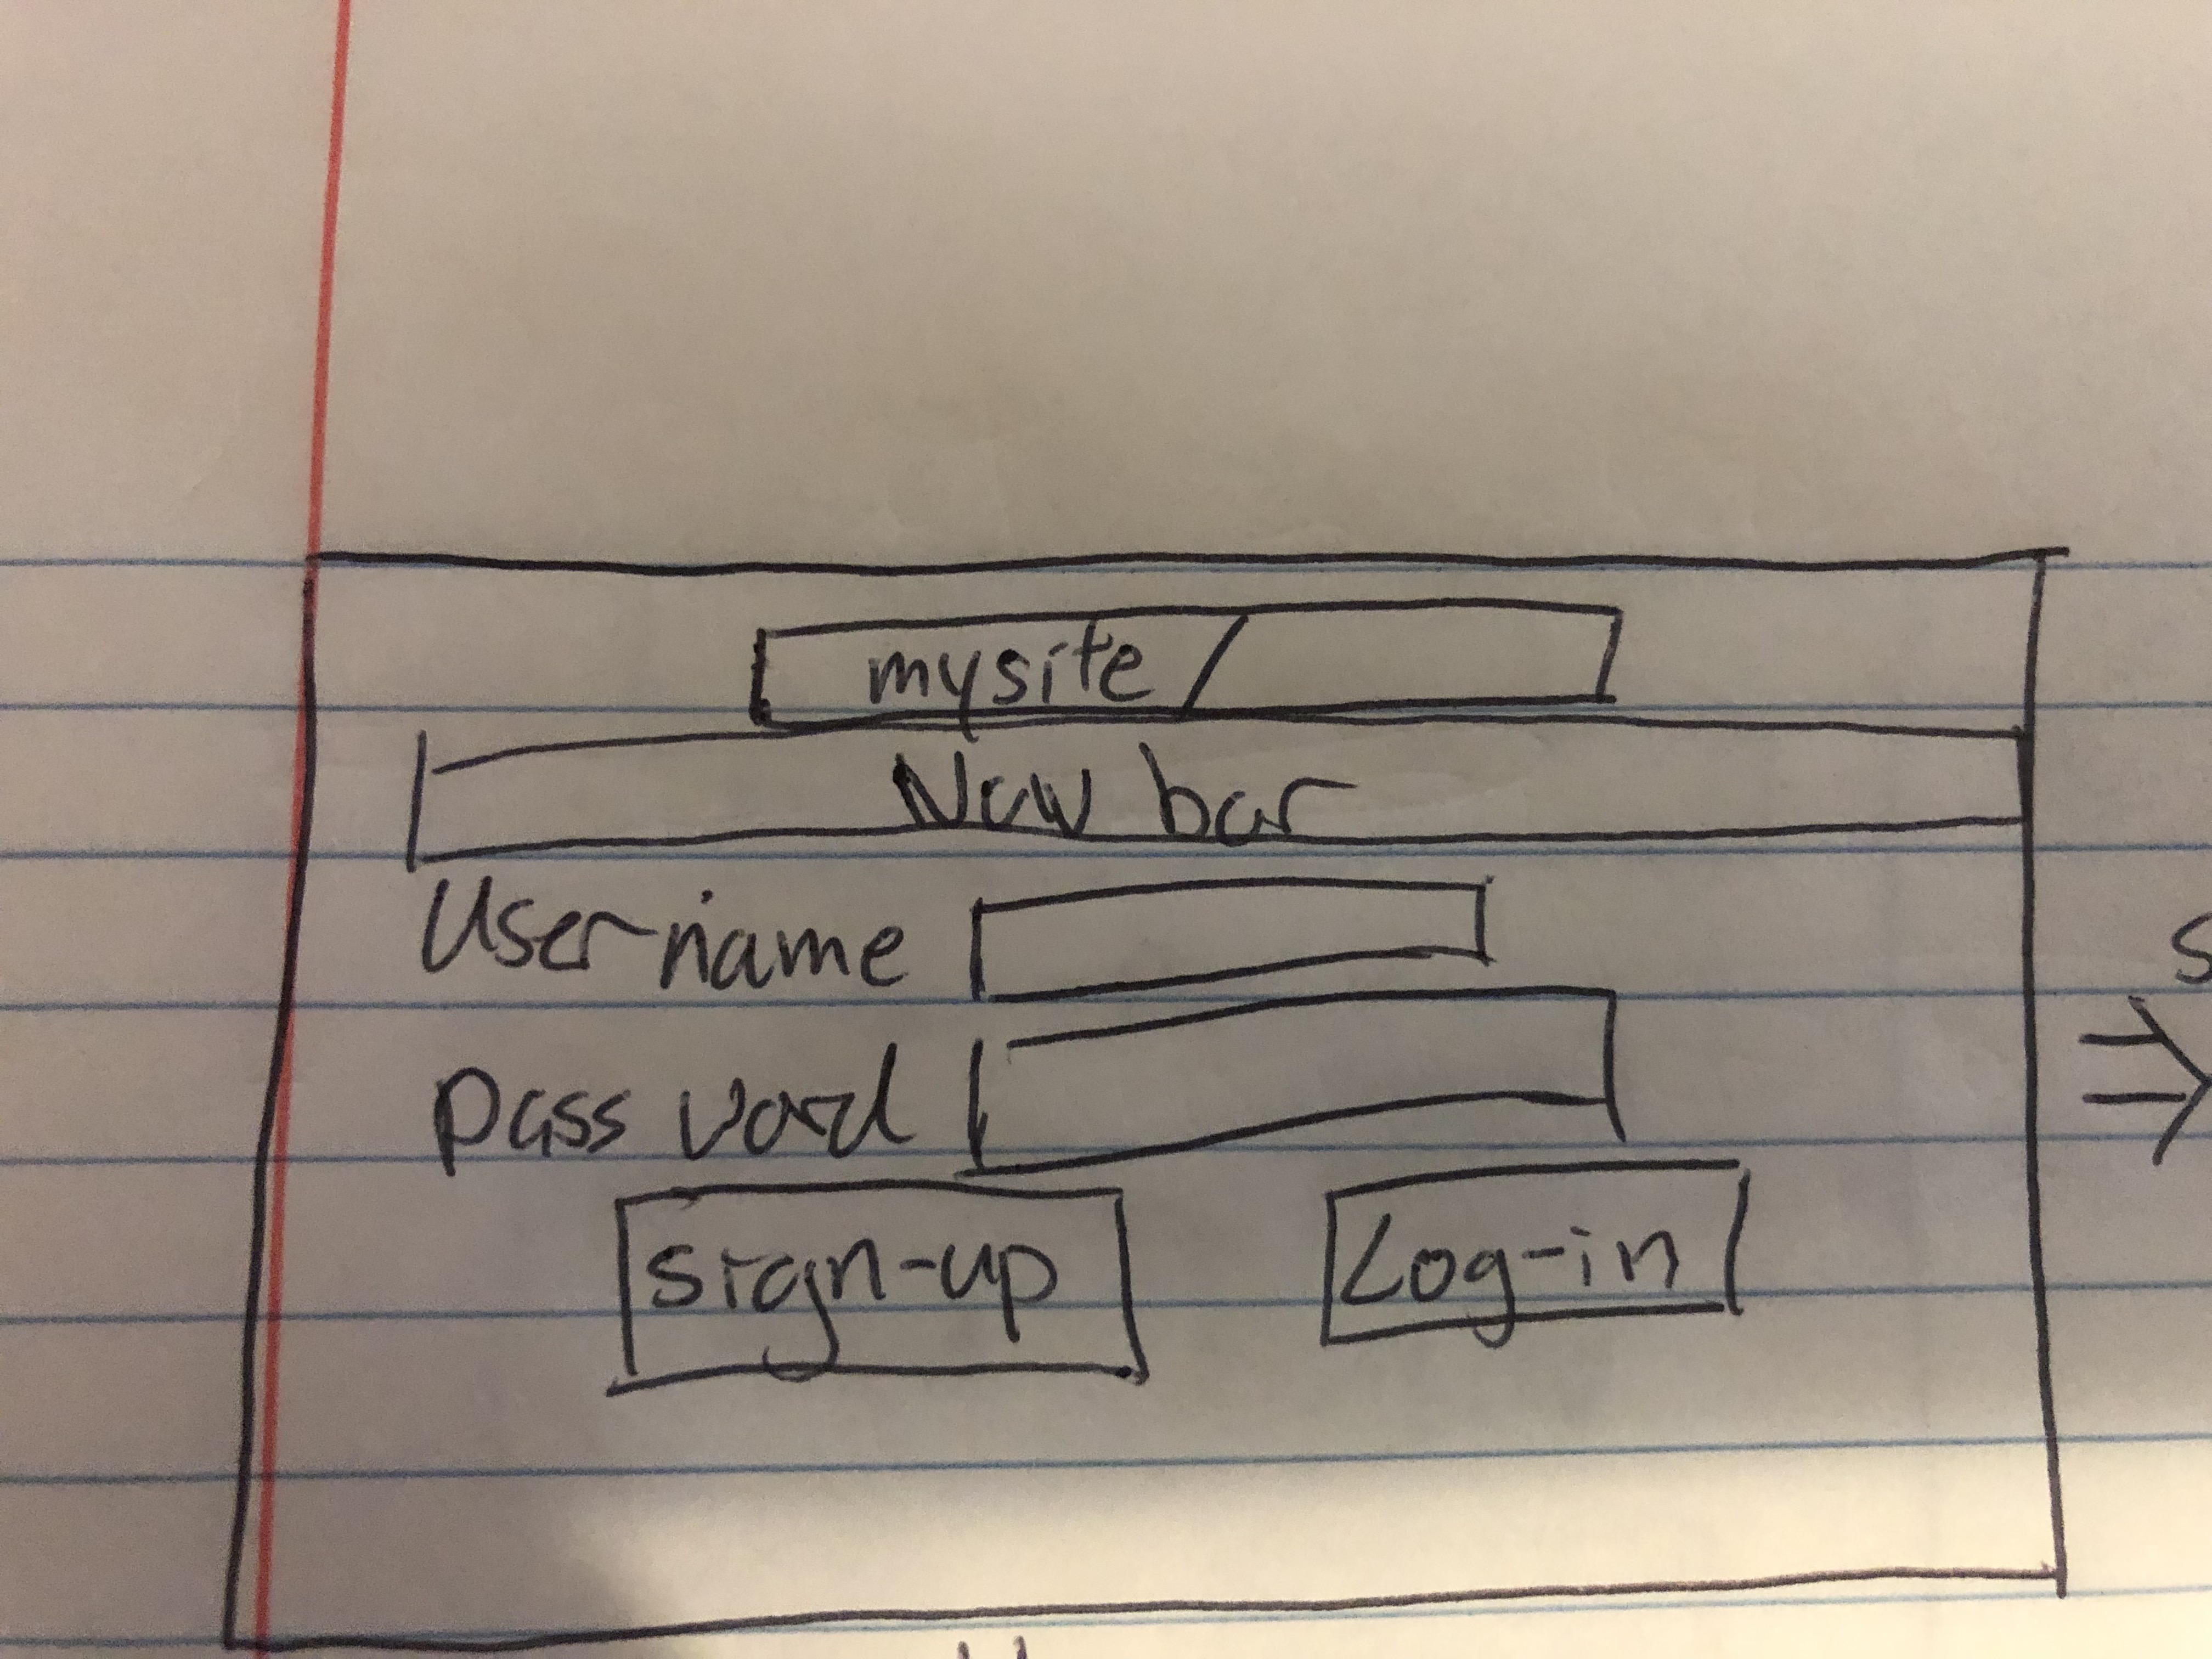 mysite/
Nav bar
Username
password
sign-up
Log-in